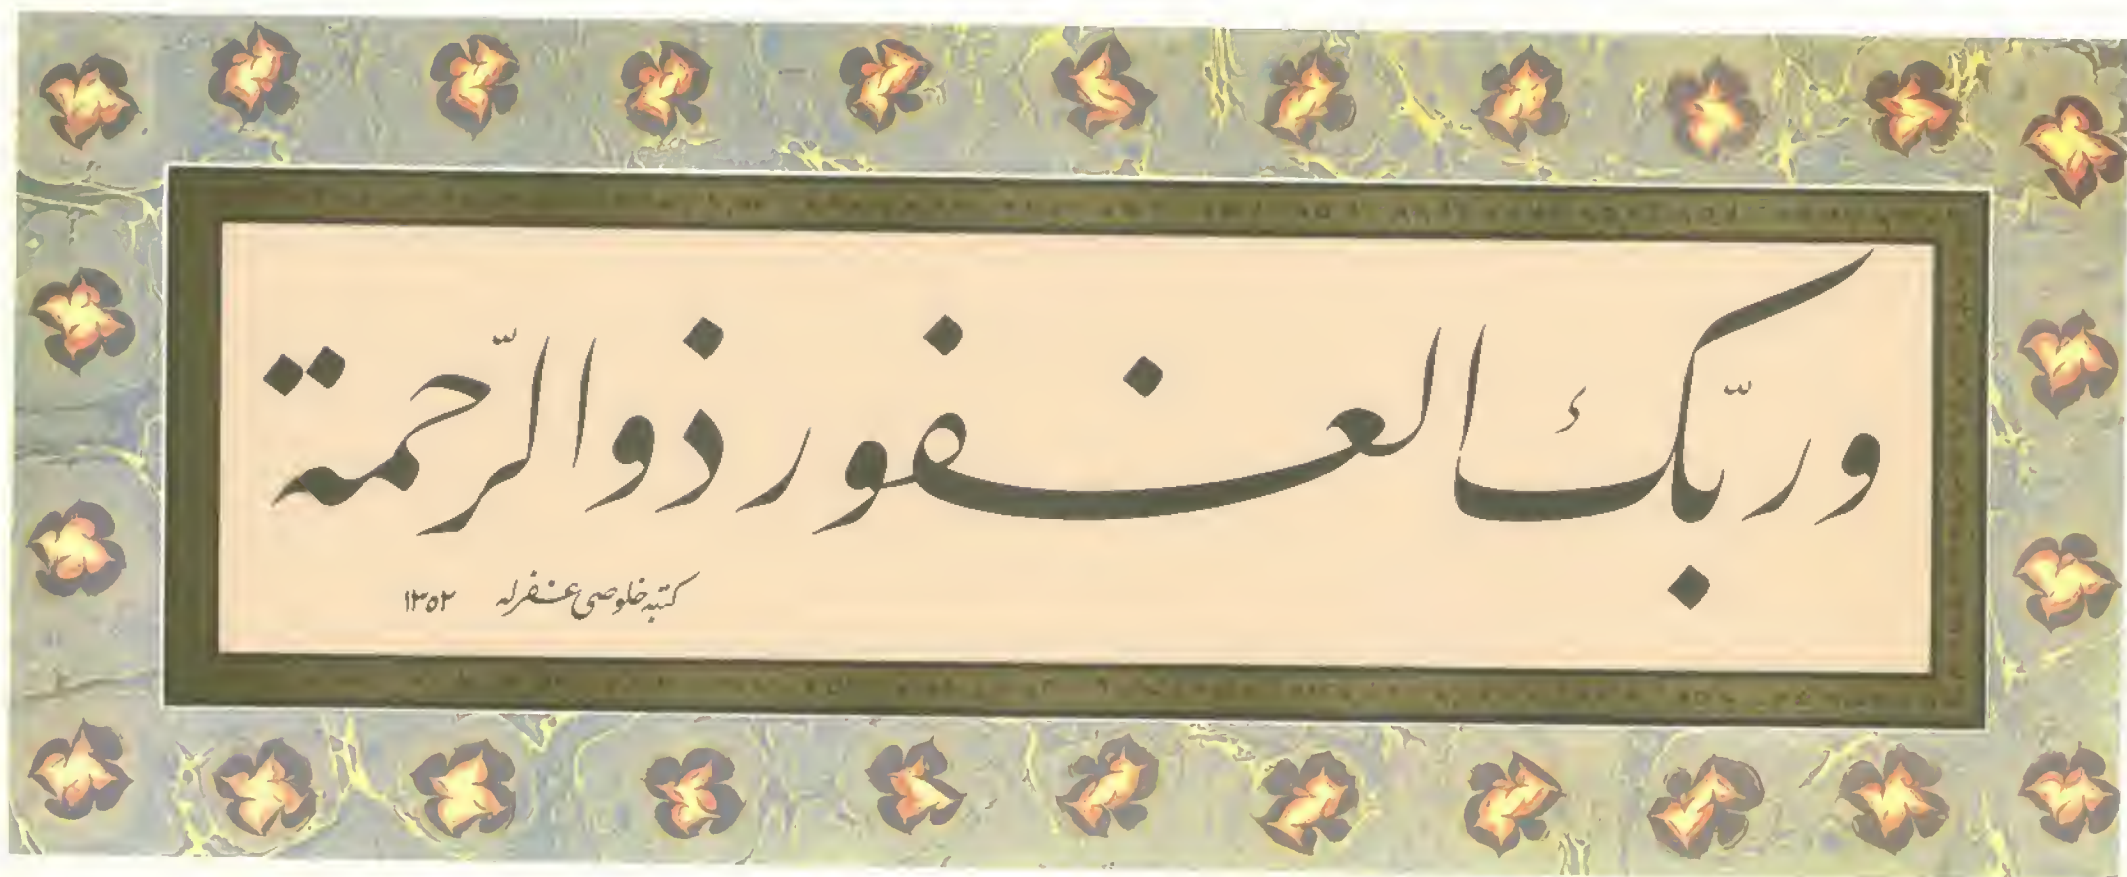 وربّك الغفور ذو الرّحمة
كتبه خلوصى غفرله ١٣٥٢